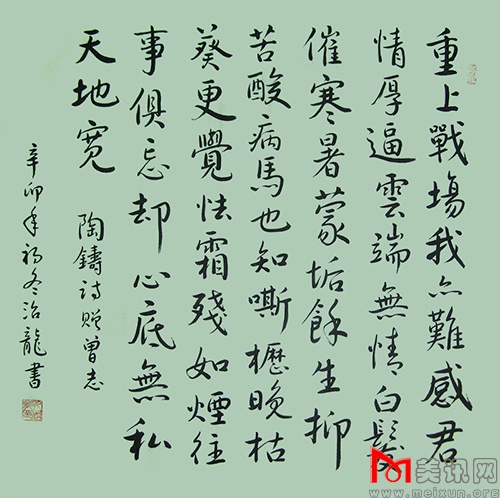 重上戰場我亦難感君
情厚逼雲端無情白髮
催寒暑蒙垢餘生抑
苦酸病馬也知嘶櫪晚枯
葵更覺怯霜殘如煙往
事俱忘却心底無私
天地宽
陶鑄詩贈曾志
辛卯年初冬治龍書
美讯网
www.meixun.org